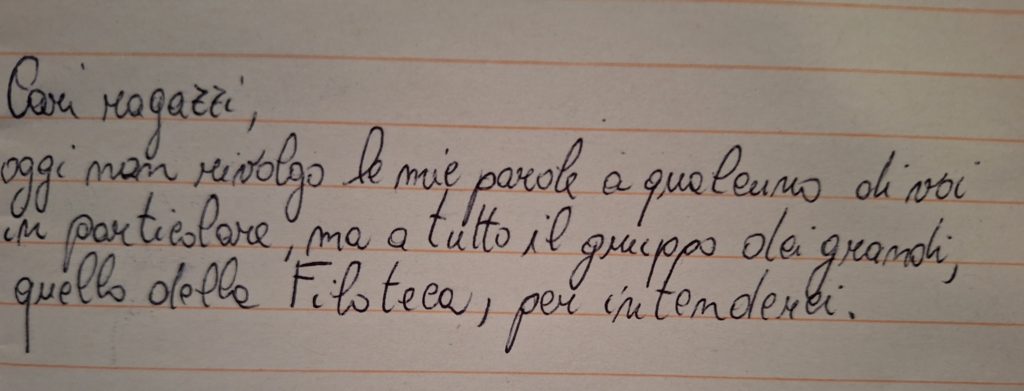 Cari ragazzi,
oggi non rivolgo le mie parole a qualcuno di voi
in particolare, ma a tutto il gruppo dei grandi,
quello della Filoteca, per intenderci.